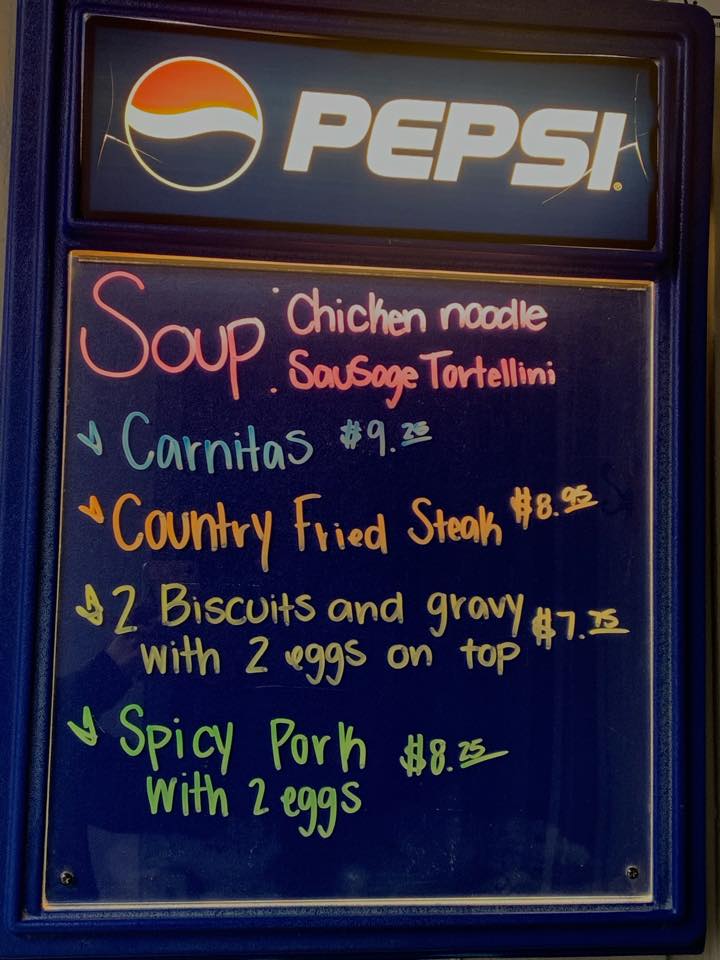 PEPSI
Soup: Chicken noodle
Sausage Tortellini
Carnitas $9.25
Country Fried Steak $8.95
2 Biscuits and gravy $7.75
with 2 eggs on top
Spicy Pork $8.25
with 2 eggs